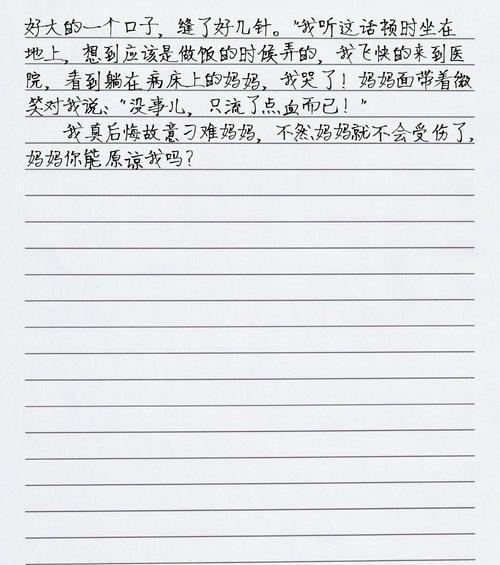 好大的一个口子，缝了好几针。”我听这话顿时坐在
地上，想到应该是做饭的时候弄的，我飞快的来到医
院，看到躺在病床上的妈妈，我哭了！妈妈面带着微
笑对我说：“没事儿，只流了点血而已！”
我真后悔故意刁难妈妈，不然妈妈就不会受伤了，
妈妈你能原谅我吗？